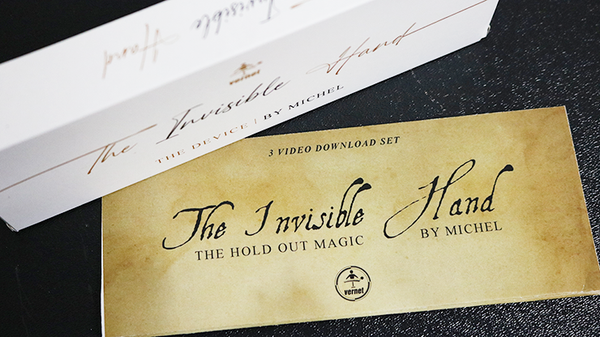 The Invisible Hand
vernet
The Invisible Hand
THE DEVICE | BY MICHEL
3 VIDEO DOWNLOAD SET
The Invisible Hand
THE HOLD OUT MAGIC
BY MICHEL
vernet